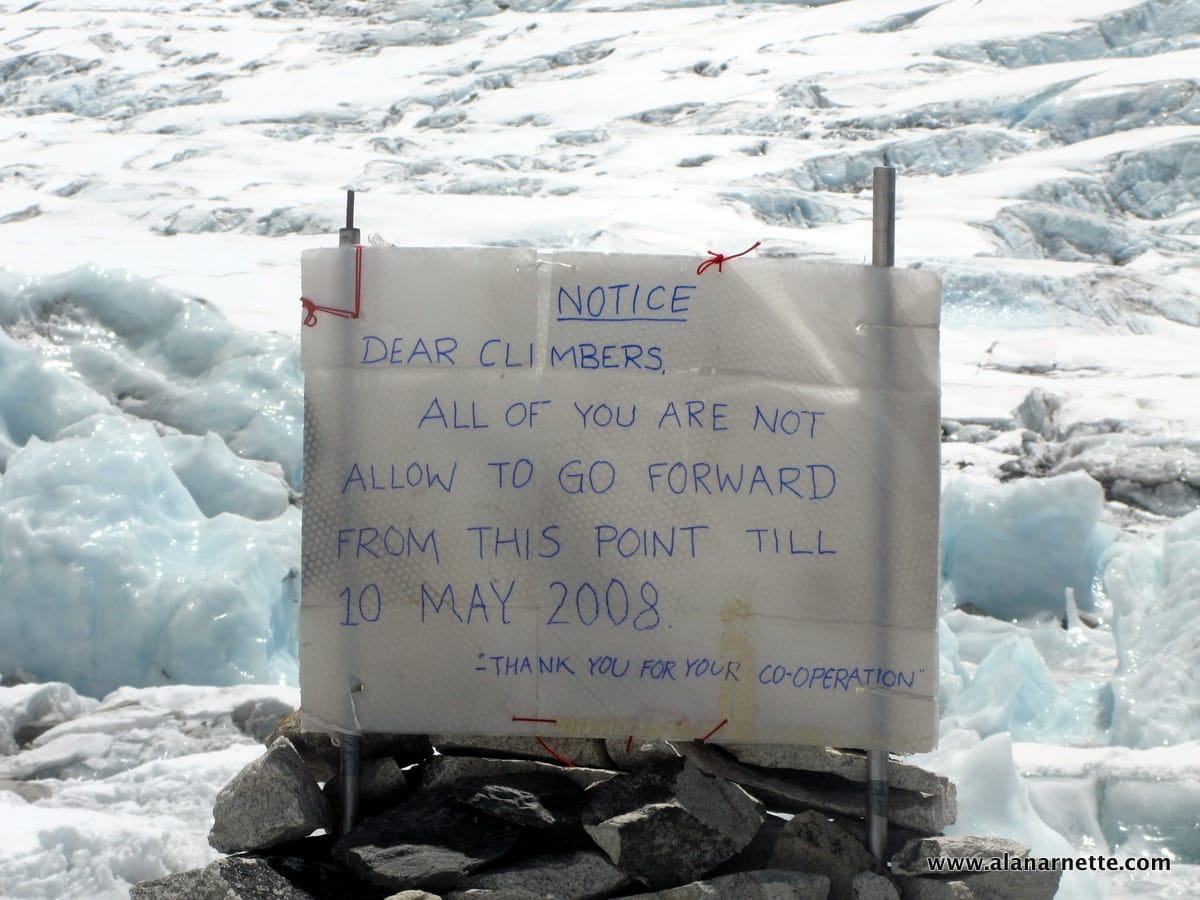 NOTICE
DEAR CLIMBERS,
ALL OF YOU ARE NOT
ALLOW TO GO FORWARD
FROM THIS POINT TILL
10 MAY 2008.
"THANK YOU FOR YOUR CO-OPERATION"
www.alanarnette.com